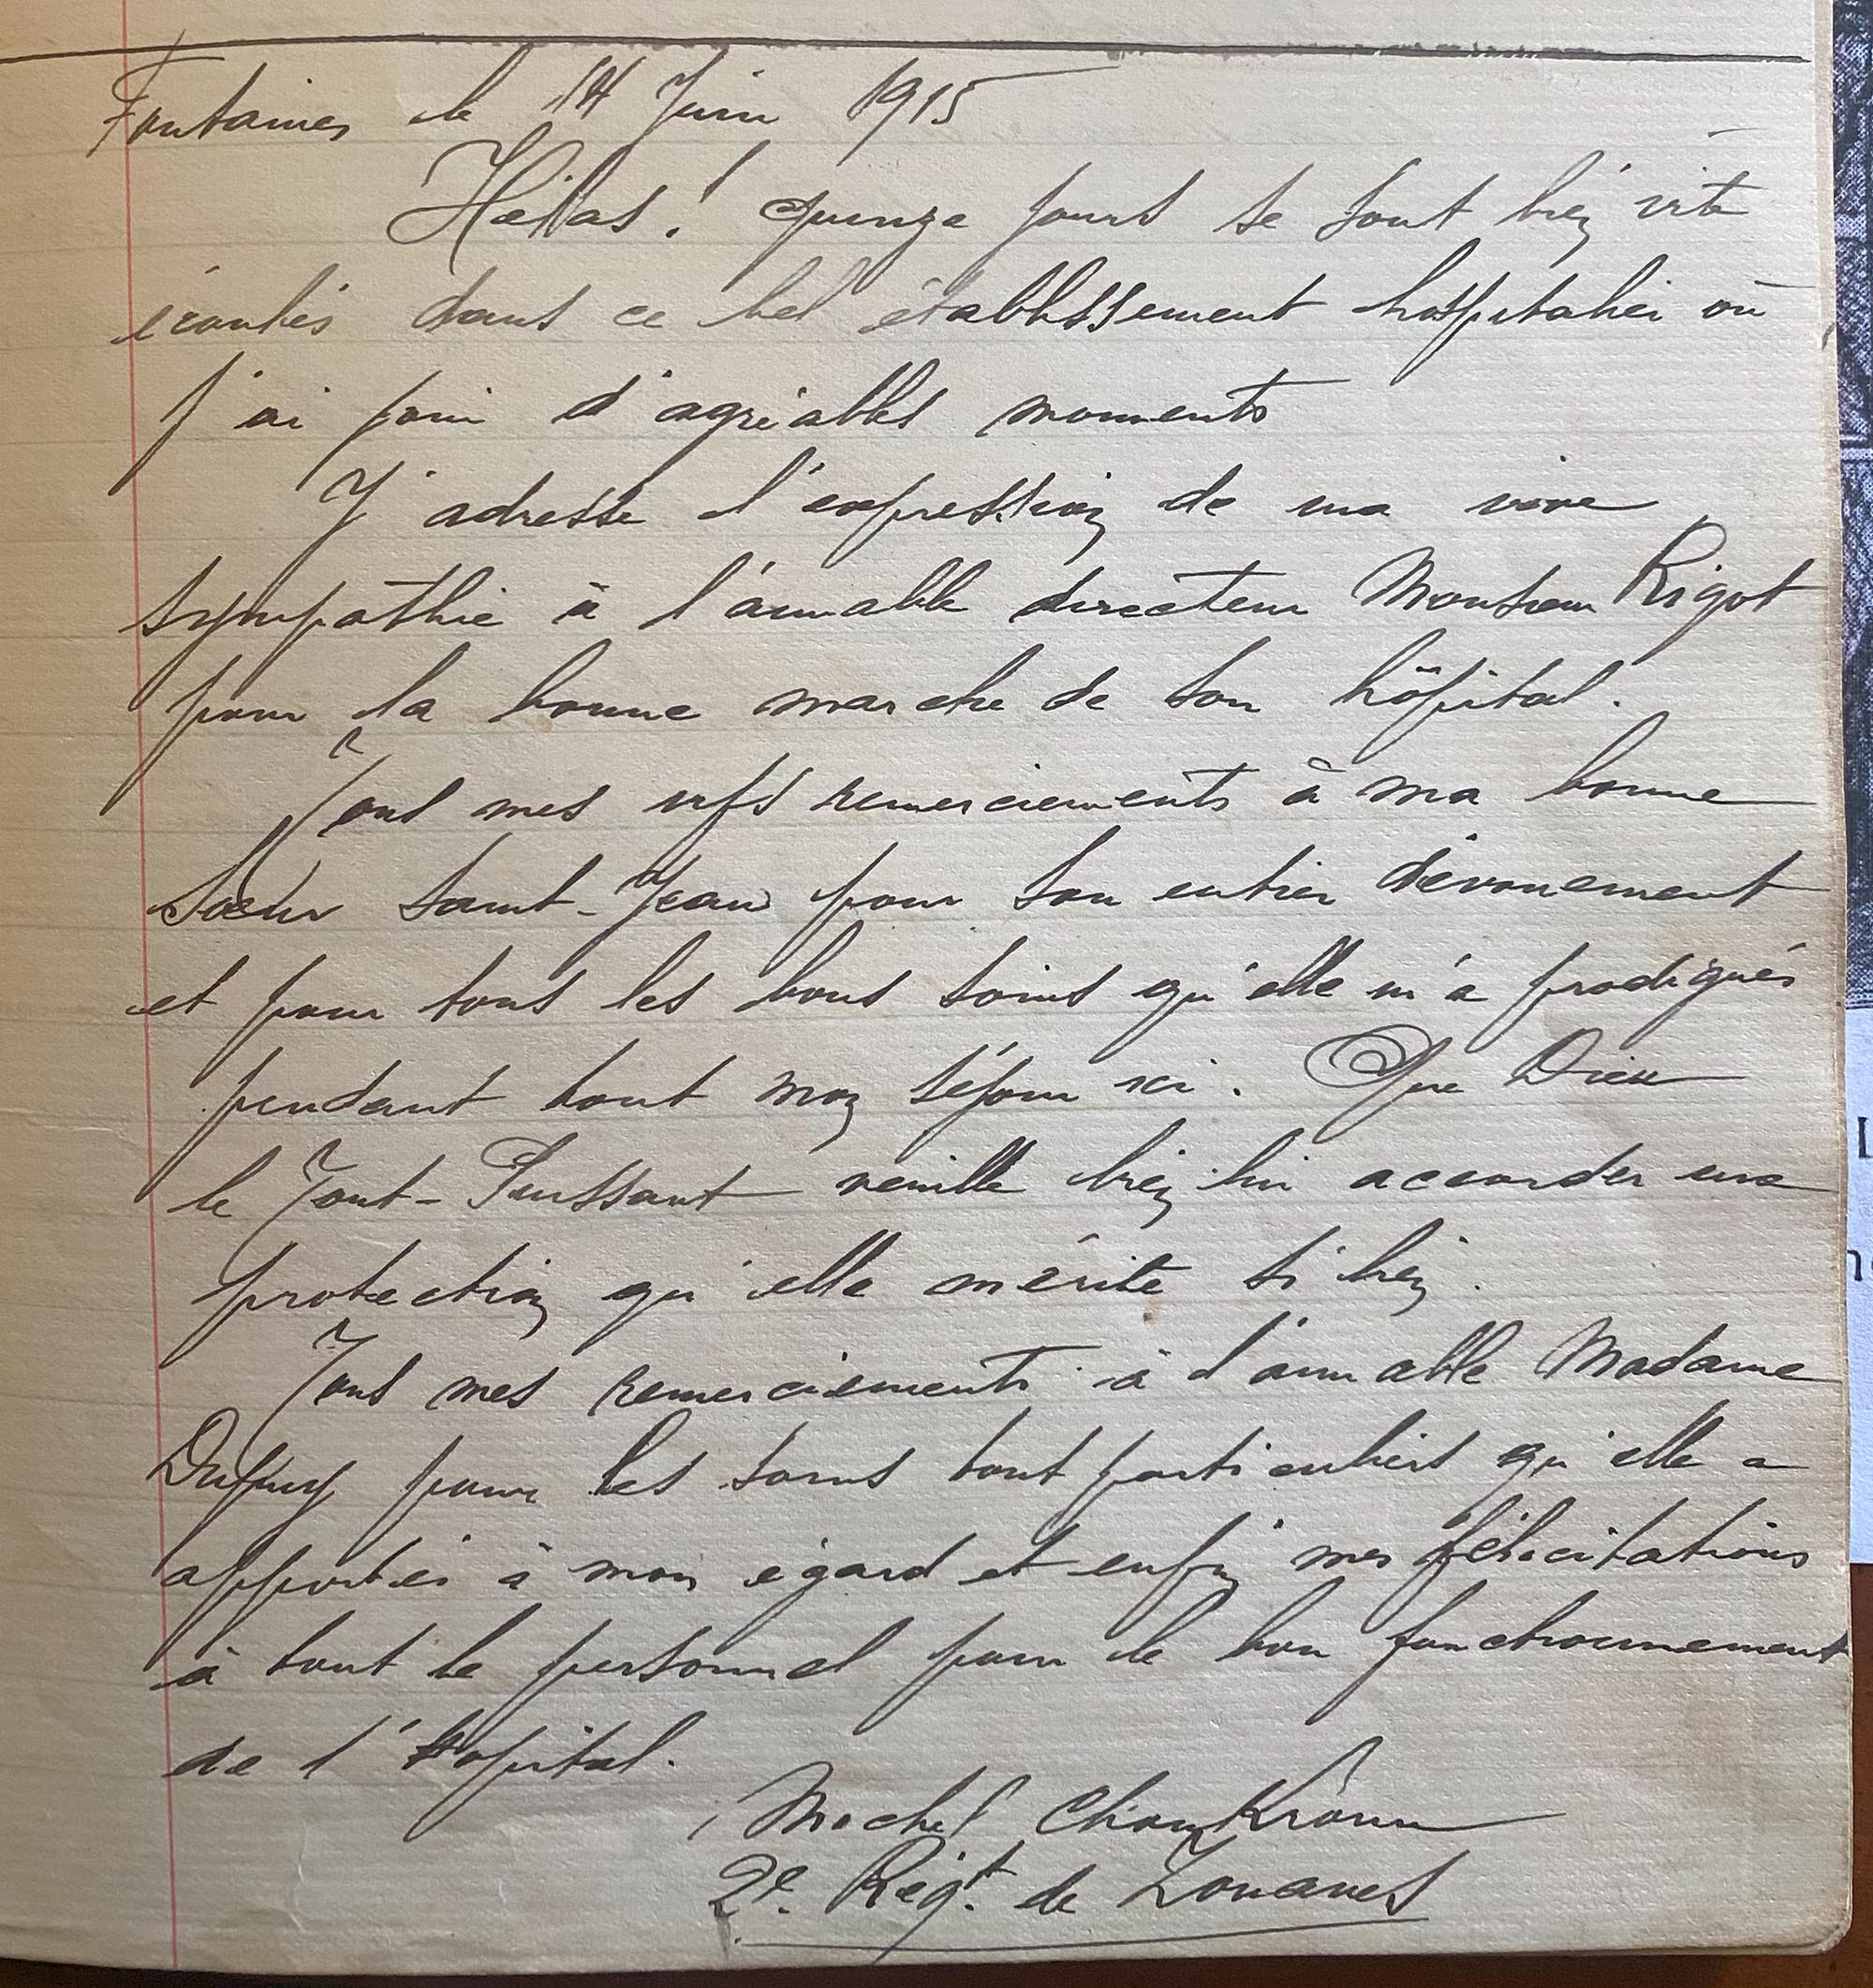 Fontaines le 14 Juin 1915
Hélas ! quinze jours se sont bien vite
écoulés dans ce bel établissement hospitalier où
j'ai joui d'agréables moments
J'adresse l'expression de ma vive
sympathie à l'aimable directeur Monsieur Rigot
pour la bonne marche de son hôpital.
Tous mes vifs remerciements à ma bonne
Sœur Saint-Jean pour son entier dévouement
et pour tous les bons soins qu'elle m'a prodigués
pendant tout mon séjour ici. Que Dieu
le Tout-Puissant veuille bien lui accorder une
protection qu'elle mérite si bien.
Tous mes remerciements à l'aimable Madame
Dupuy pour les soins tout particuliers qu'elle a
apportés à mon égard et enfin mes félicitations
à tout le personnel pour le bon fonctionnement
de l'Hopital.
Michel Choukroun
2e. Régt. de Zouaves